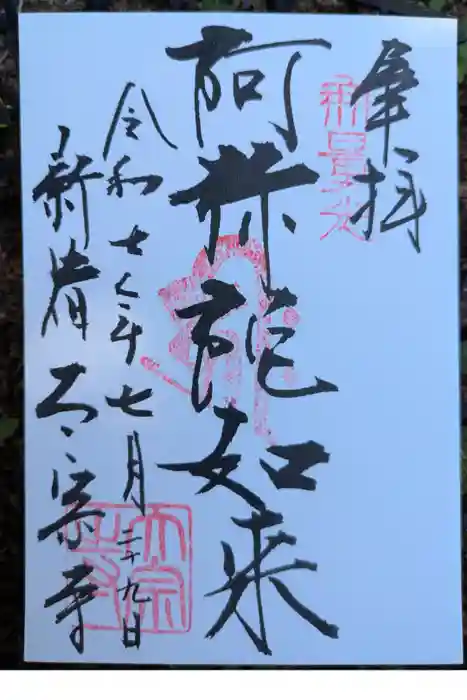 奉拝
阿弥陀如来
令和七年七月二十九日
新 大宗寺